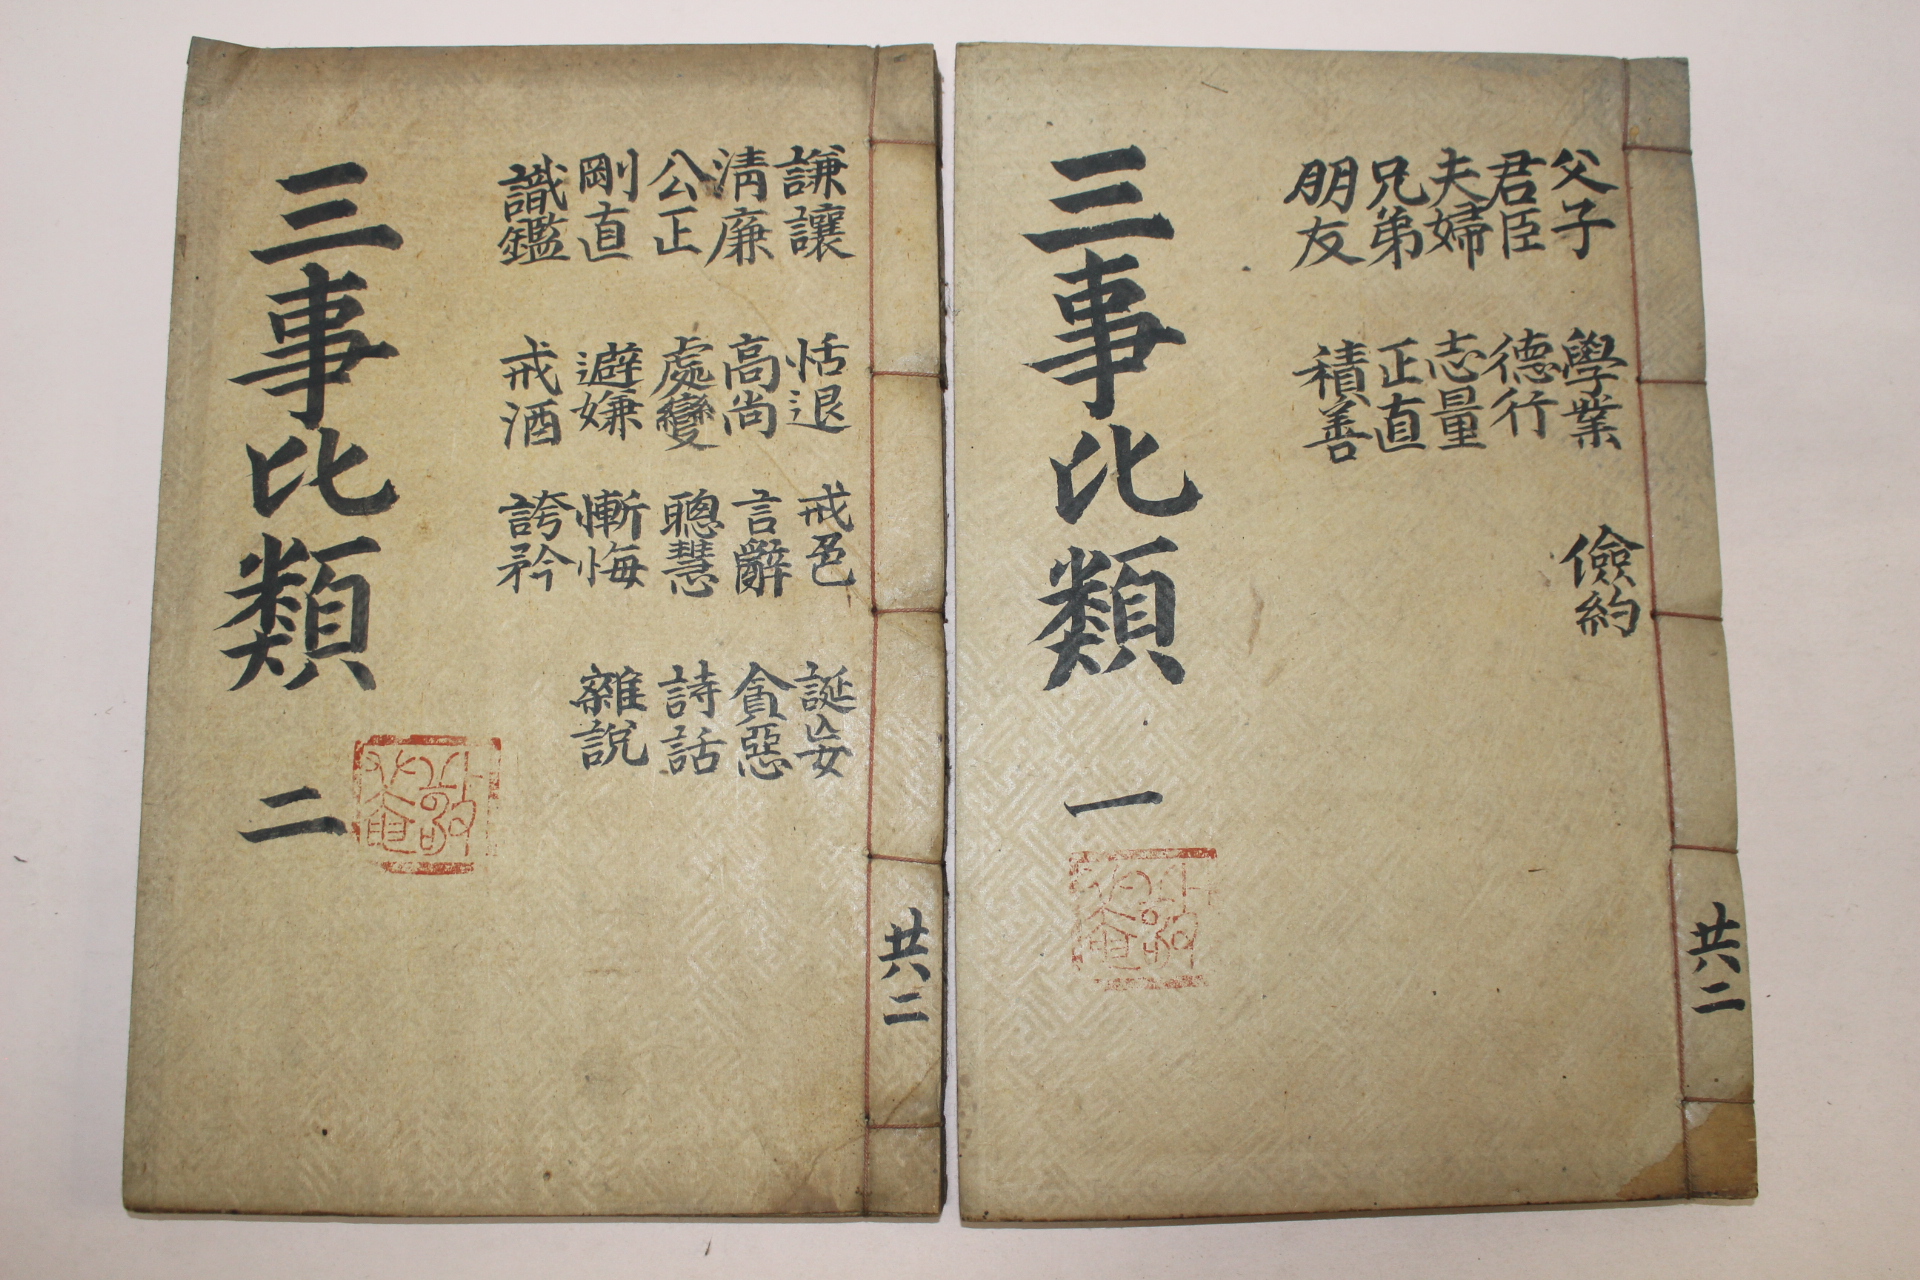 父子 學業 儉約
君臣 德行
夫婦 志量
兄弟 正直
朋友 積善
三事比類 一
共二
謙讓 恬退 戒色 誕妄
淸廉 高尙 言辭 貪惡
公正 處變 聰慧 詩話
剛直 避嫌 慚悔 雜說
識鑑 戒酒 誇矜
三事比類 二
共二